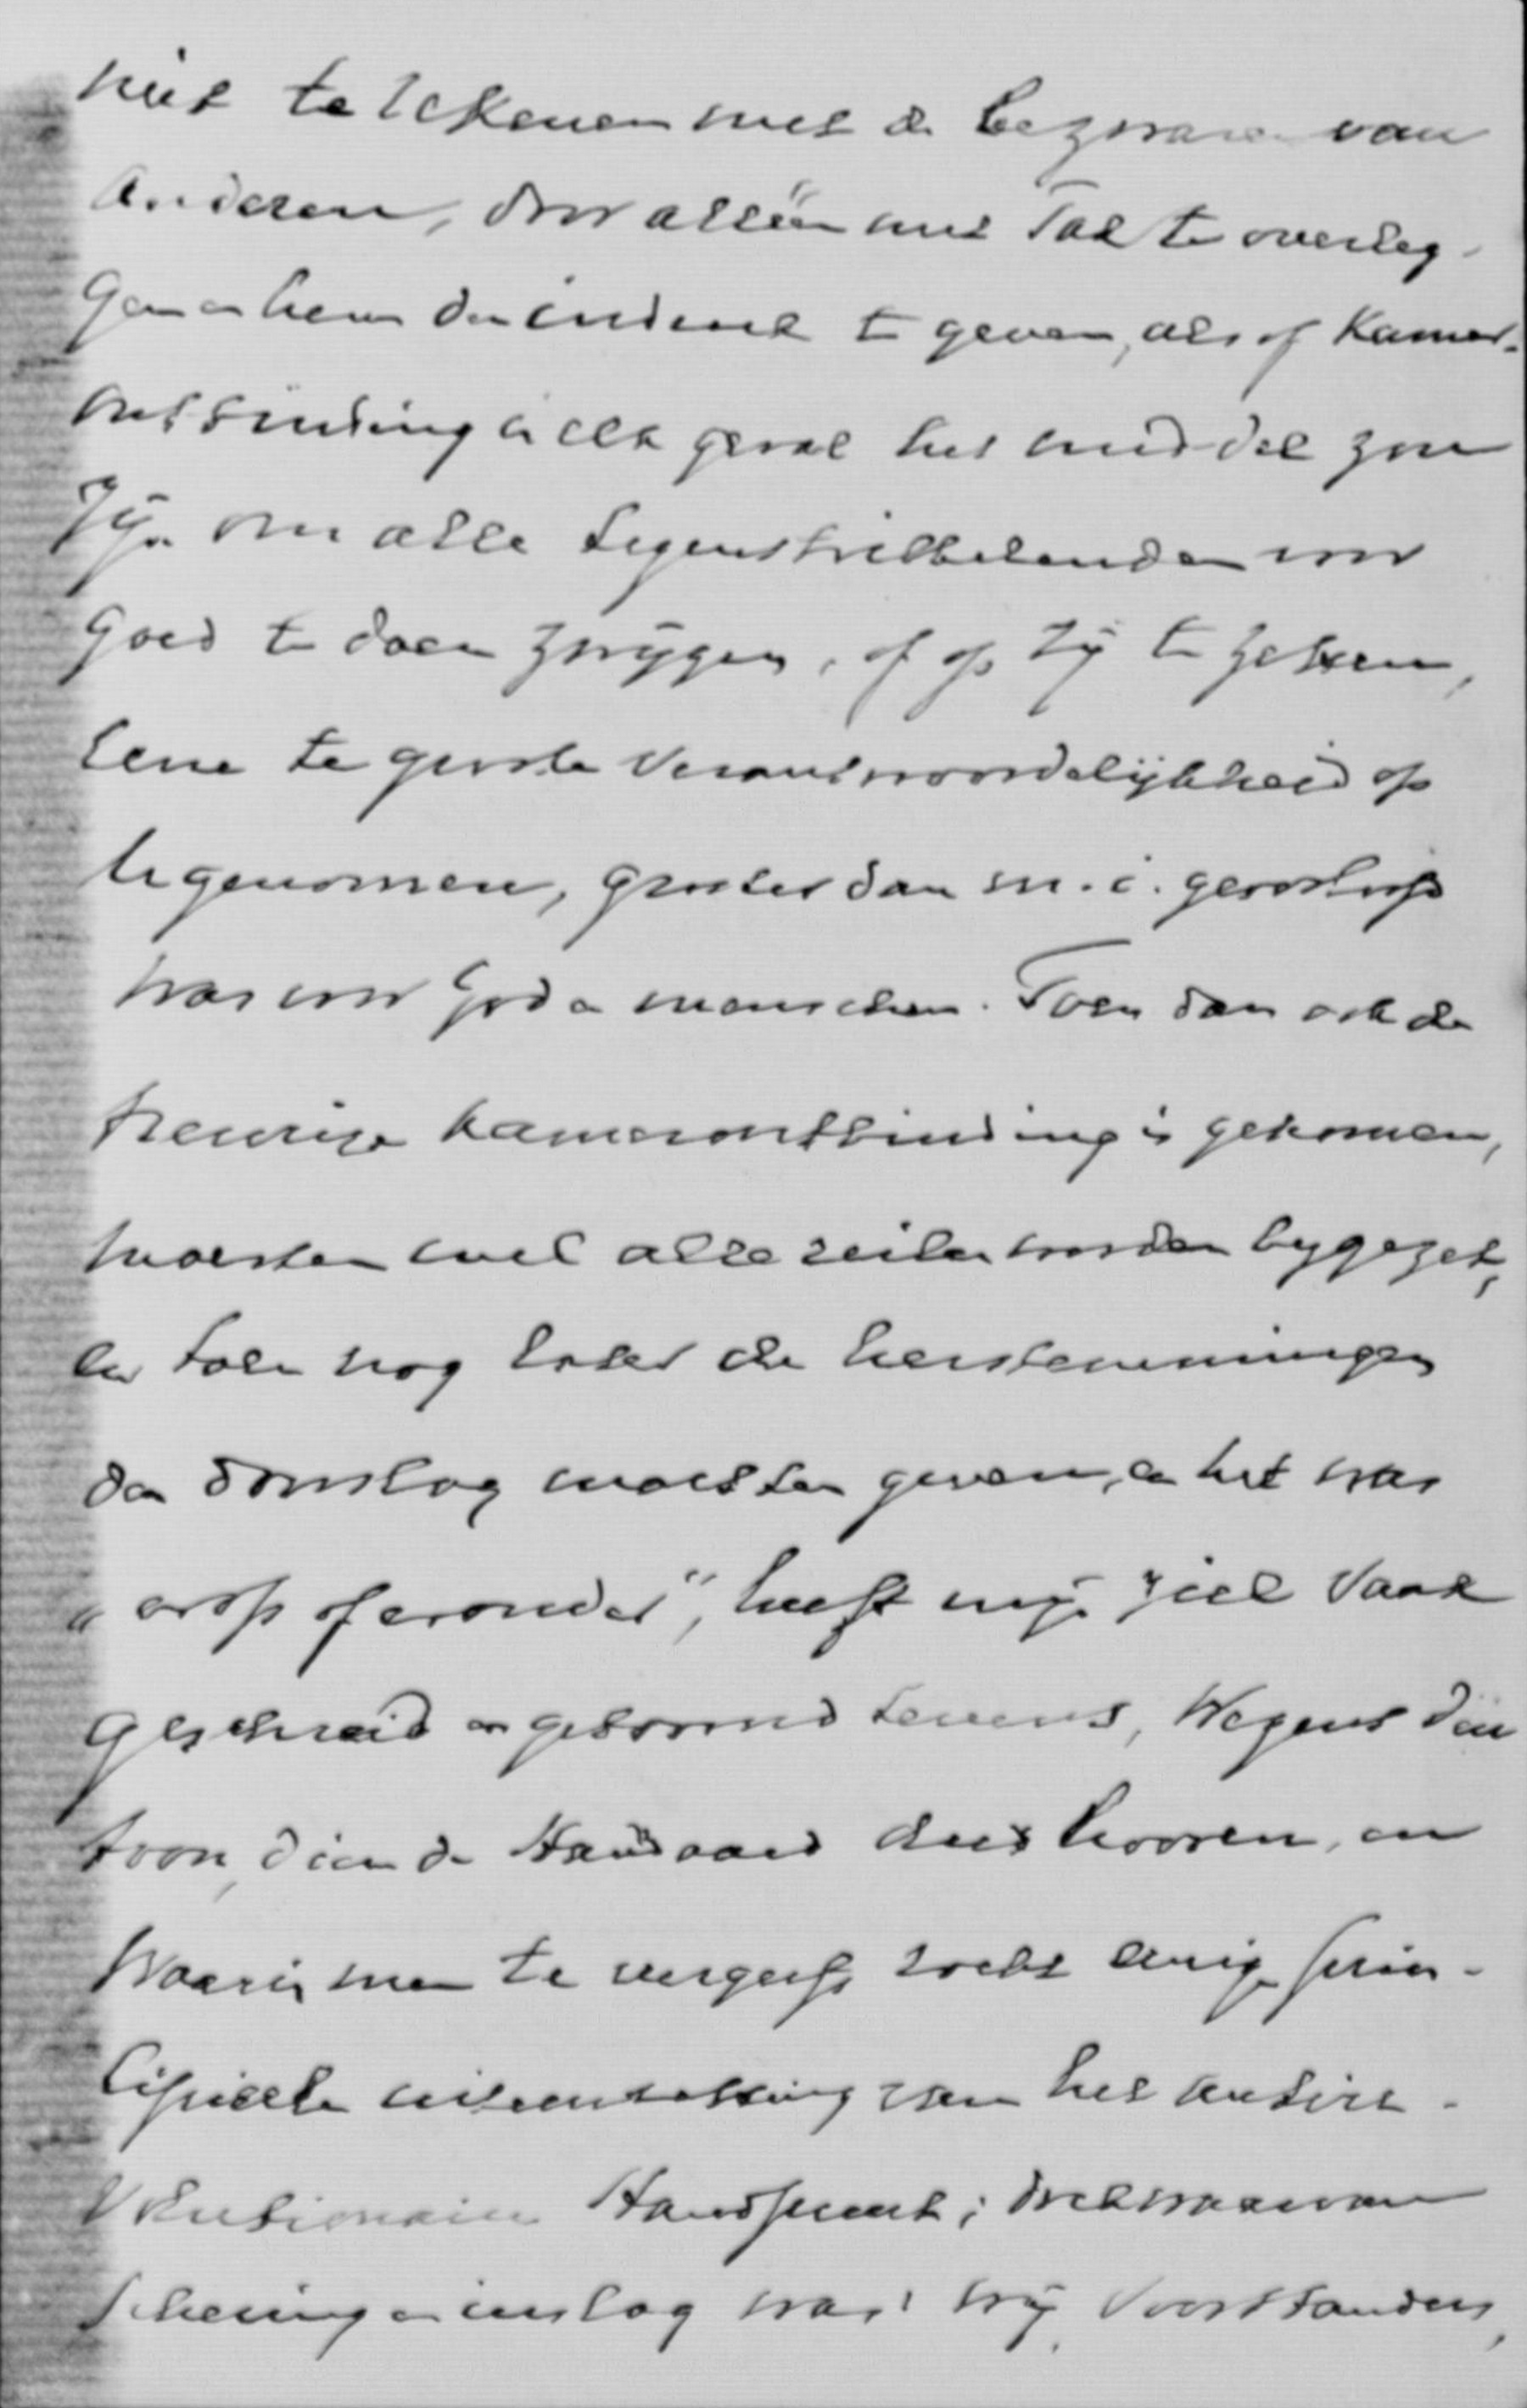 niet te rekenen met de bezwaren van
anderen, door alléén met Tak te overleg-
gen en hem den indruk te geven, alsof Kamer-
ontbinding in elk geval het middel zou
zijn om alle tegenstribbelenden voor
goed te doen zwijgen, of op zij te zetten,
eene te groote verantwoordelijkheid op
te genomen, grooter dan m.i. geoorloofd
was voor God en menschen. Toen dan ook de
treurige kamerontbinding is gekomen,
moesten wel alle zeilen worden bygezet,
en toen nog later de herstemmingen
den doorslag moesten geven, en het was
"erop of eronder", heeft mijn ziel vaak
geschreid en getoornd tevens, wegens dien
toon, dien de Standaard deed hooren, en
waarin men te vergeefs zocht eenige prin-
cipieele uiteenzetting van het antire-
volutionaire standpunt; doch waarvan
schering en inslag was: wij, voorstanders,